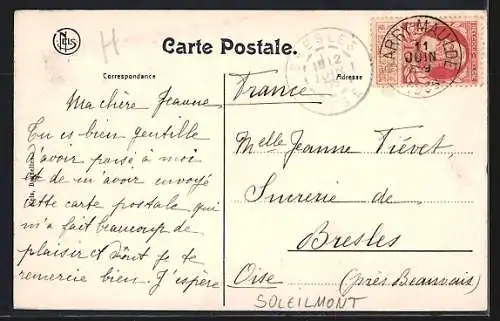 Nels
H
Carte Postale.
BRESLES
12
OISE
BARRY-MAULDE
11
JUIN
9
Correspondance
Adresse
Ma chère Jeanne,
Tu es bien gentille
d'avoir pensé à moi
et de m'avoir envoyé
cette carte postale qui
m'a fait beaucoup de
plaisir et dont je te
remercie bien. J'espère
France
Melle Jeanne Tiévet,
Sucrerie de
Bresles
Oise (près Beauvais)
SOLEILMONT